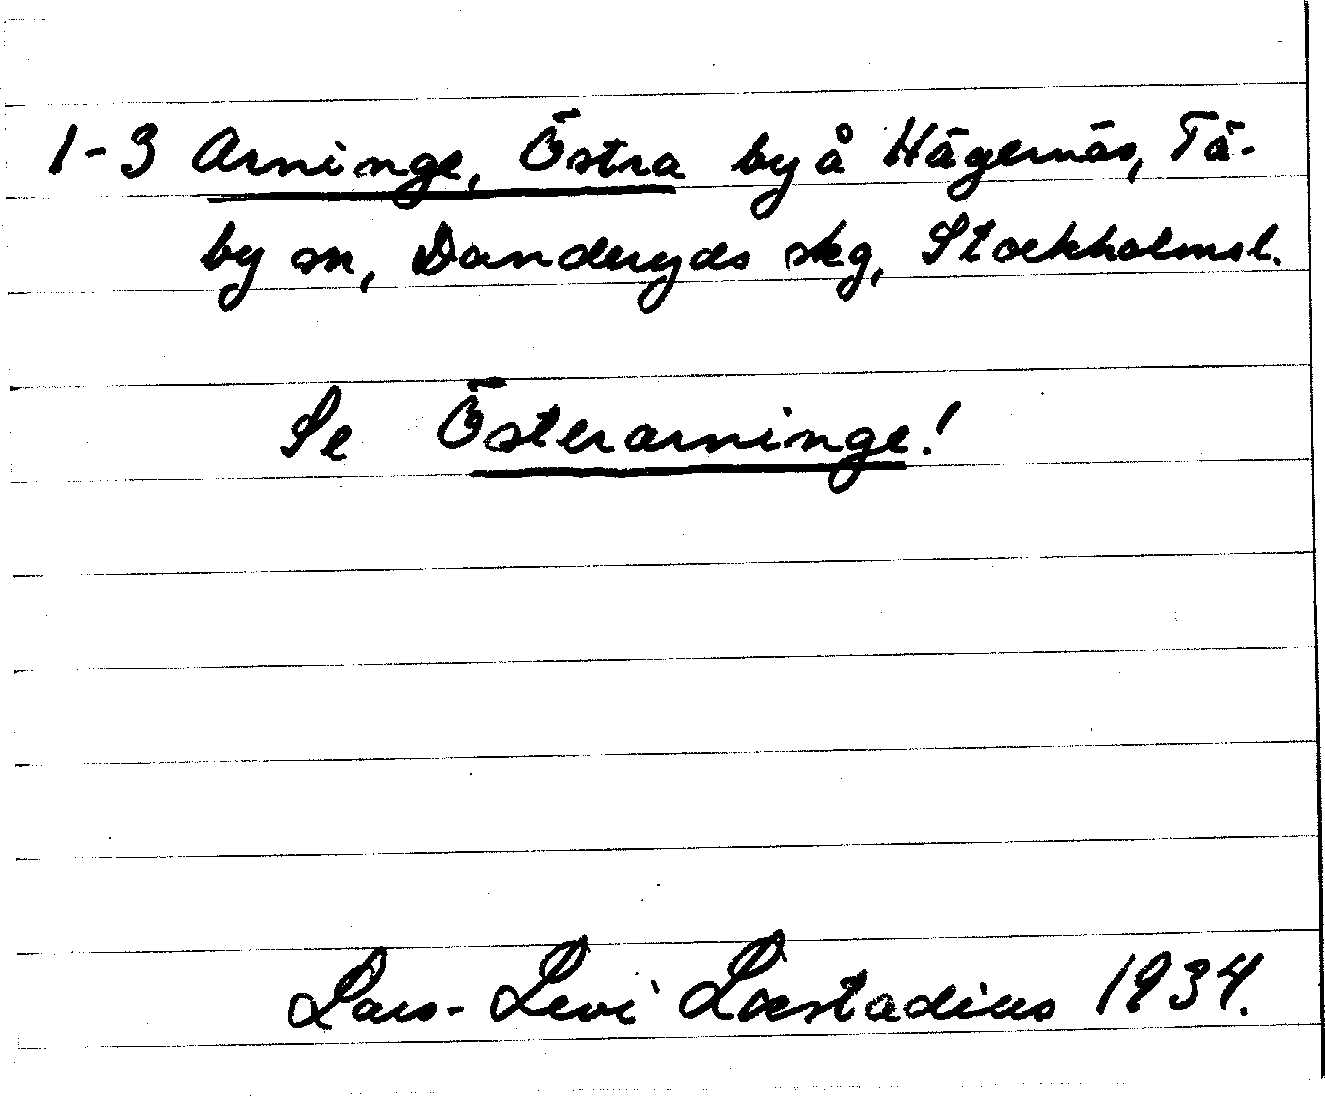 1-3 Arninge, Östra by å Hägernäs, Tä-
by sn, Danderyds skg, Stockholmsl.
Se Österarninge!
Lars-Levi Læstadius 1934.